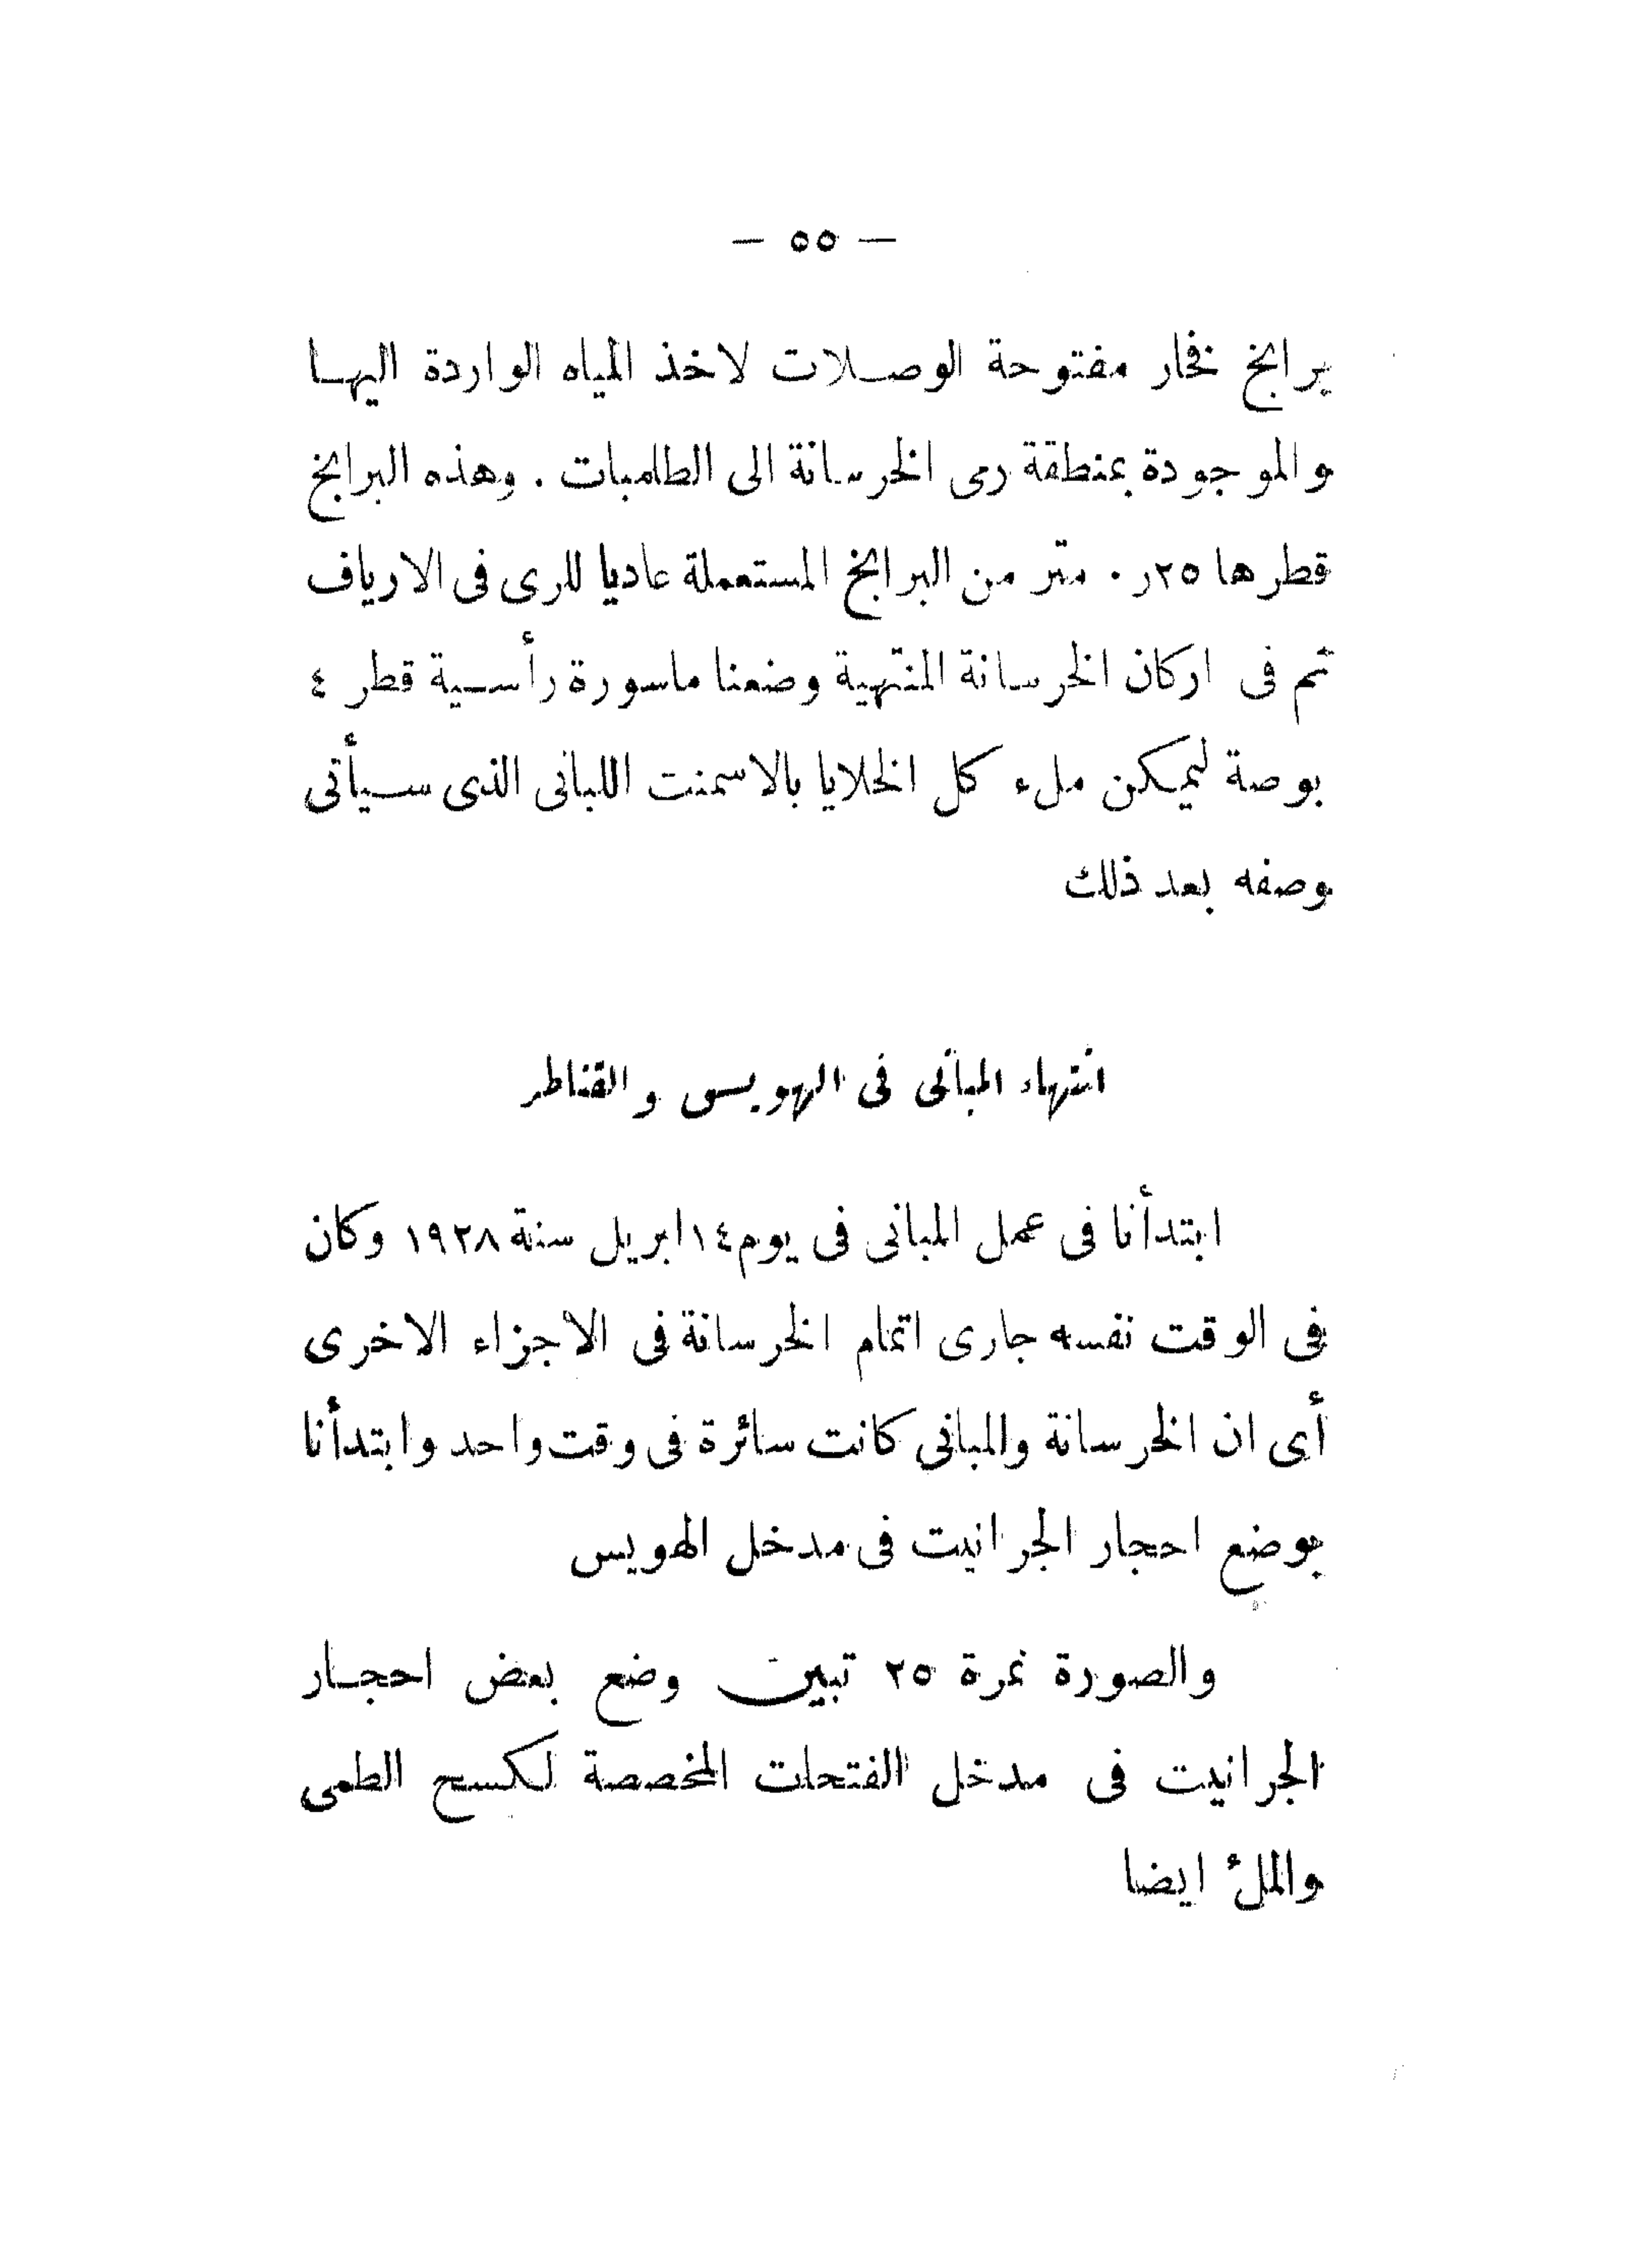 — ٥٥ —
برابخ فخار مفتوحة الوصلات لاخذ المياه الواردة اليها
والموجودة بمنطقة رمى الخرسانة الى الطلمبات . وهذه البرابخ
قطرها ٢٥ر٠ متر من البرابخ المستعملة عاديا للرى فى الارياف
ثم فى اركان الخرسانة المنتهية وضعنا ماسورة رأسية قطر ٤
بوصة ليمكن ملء كل الخلايا بالاسمنت اللبانى الذى سيأتى
وصفه بعد ذلك
انتهاء المبانى فى الهويس والقناطر
ابتدأنا فى عمل المبانى فى يوم ١٤ ابريل سنة ١٩٢٨ وكان
فى الوقت نفسه جارى اتمام الخرسانة فى الاجزاء الاخرى
أى ان الخرسانة والمبانى كانت سائرة فى وقت واحد وابتدأنا
بوضع احجار الجرانيت فى مدخل الهويس
والصورة نمرة ٢٥ تبين وضع بعض احجار
الجرانيت فى مدخل الفتحات المخصصة لكسح الطمى
والملئ ايضا